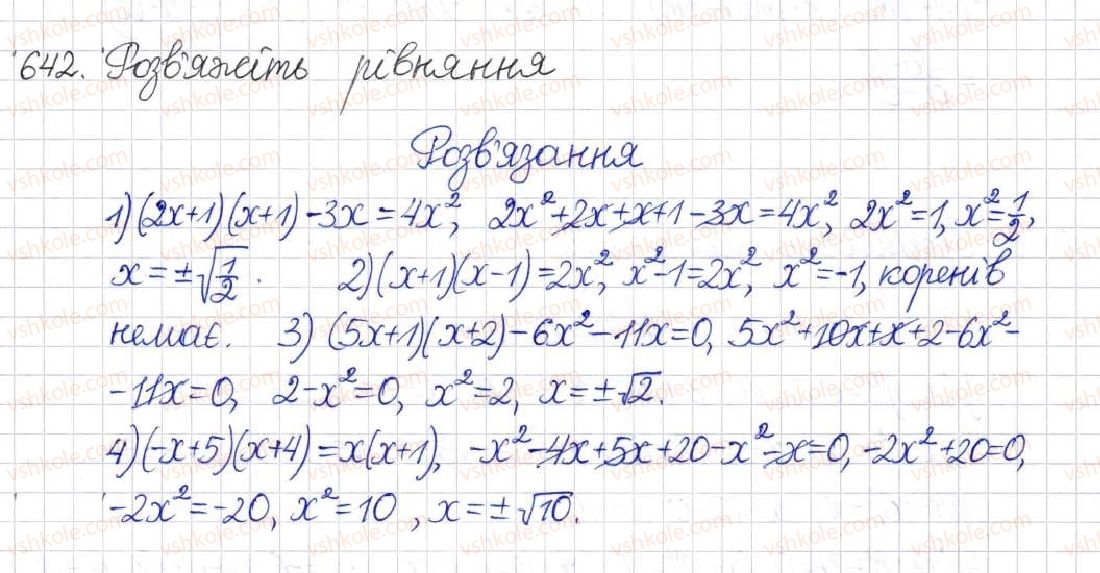 642. Розв'яжіть рівняння
Розв'язання
1) (2x+1)(x+1)-3x=4x², 2x²+2x+x+1-3x=4x², 2x²=1, x²=1/2,
x=±√(1/2). 2) (x+1)(x-1)=2x², x²-1=2x², x²=-1, коренів
немає. 3) (5x+1)(x+2)-6x²-11x=0, 5x²+10x+x+2-6x²-
-11x=0, 2-x²=0, x²=2, x=±√2.
4) (-x+5)(x+4)=x(x+1), -x²-4x+5x+20-x²-x=0, -2x²+20=0,
-2x²=-20, x²=10, x=±√10.
vshkole.com